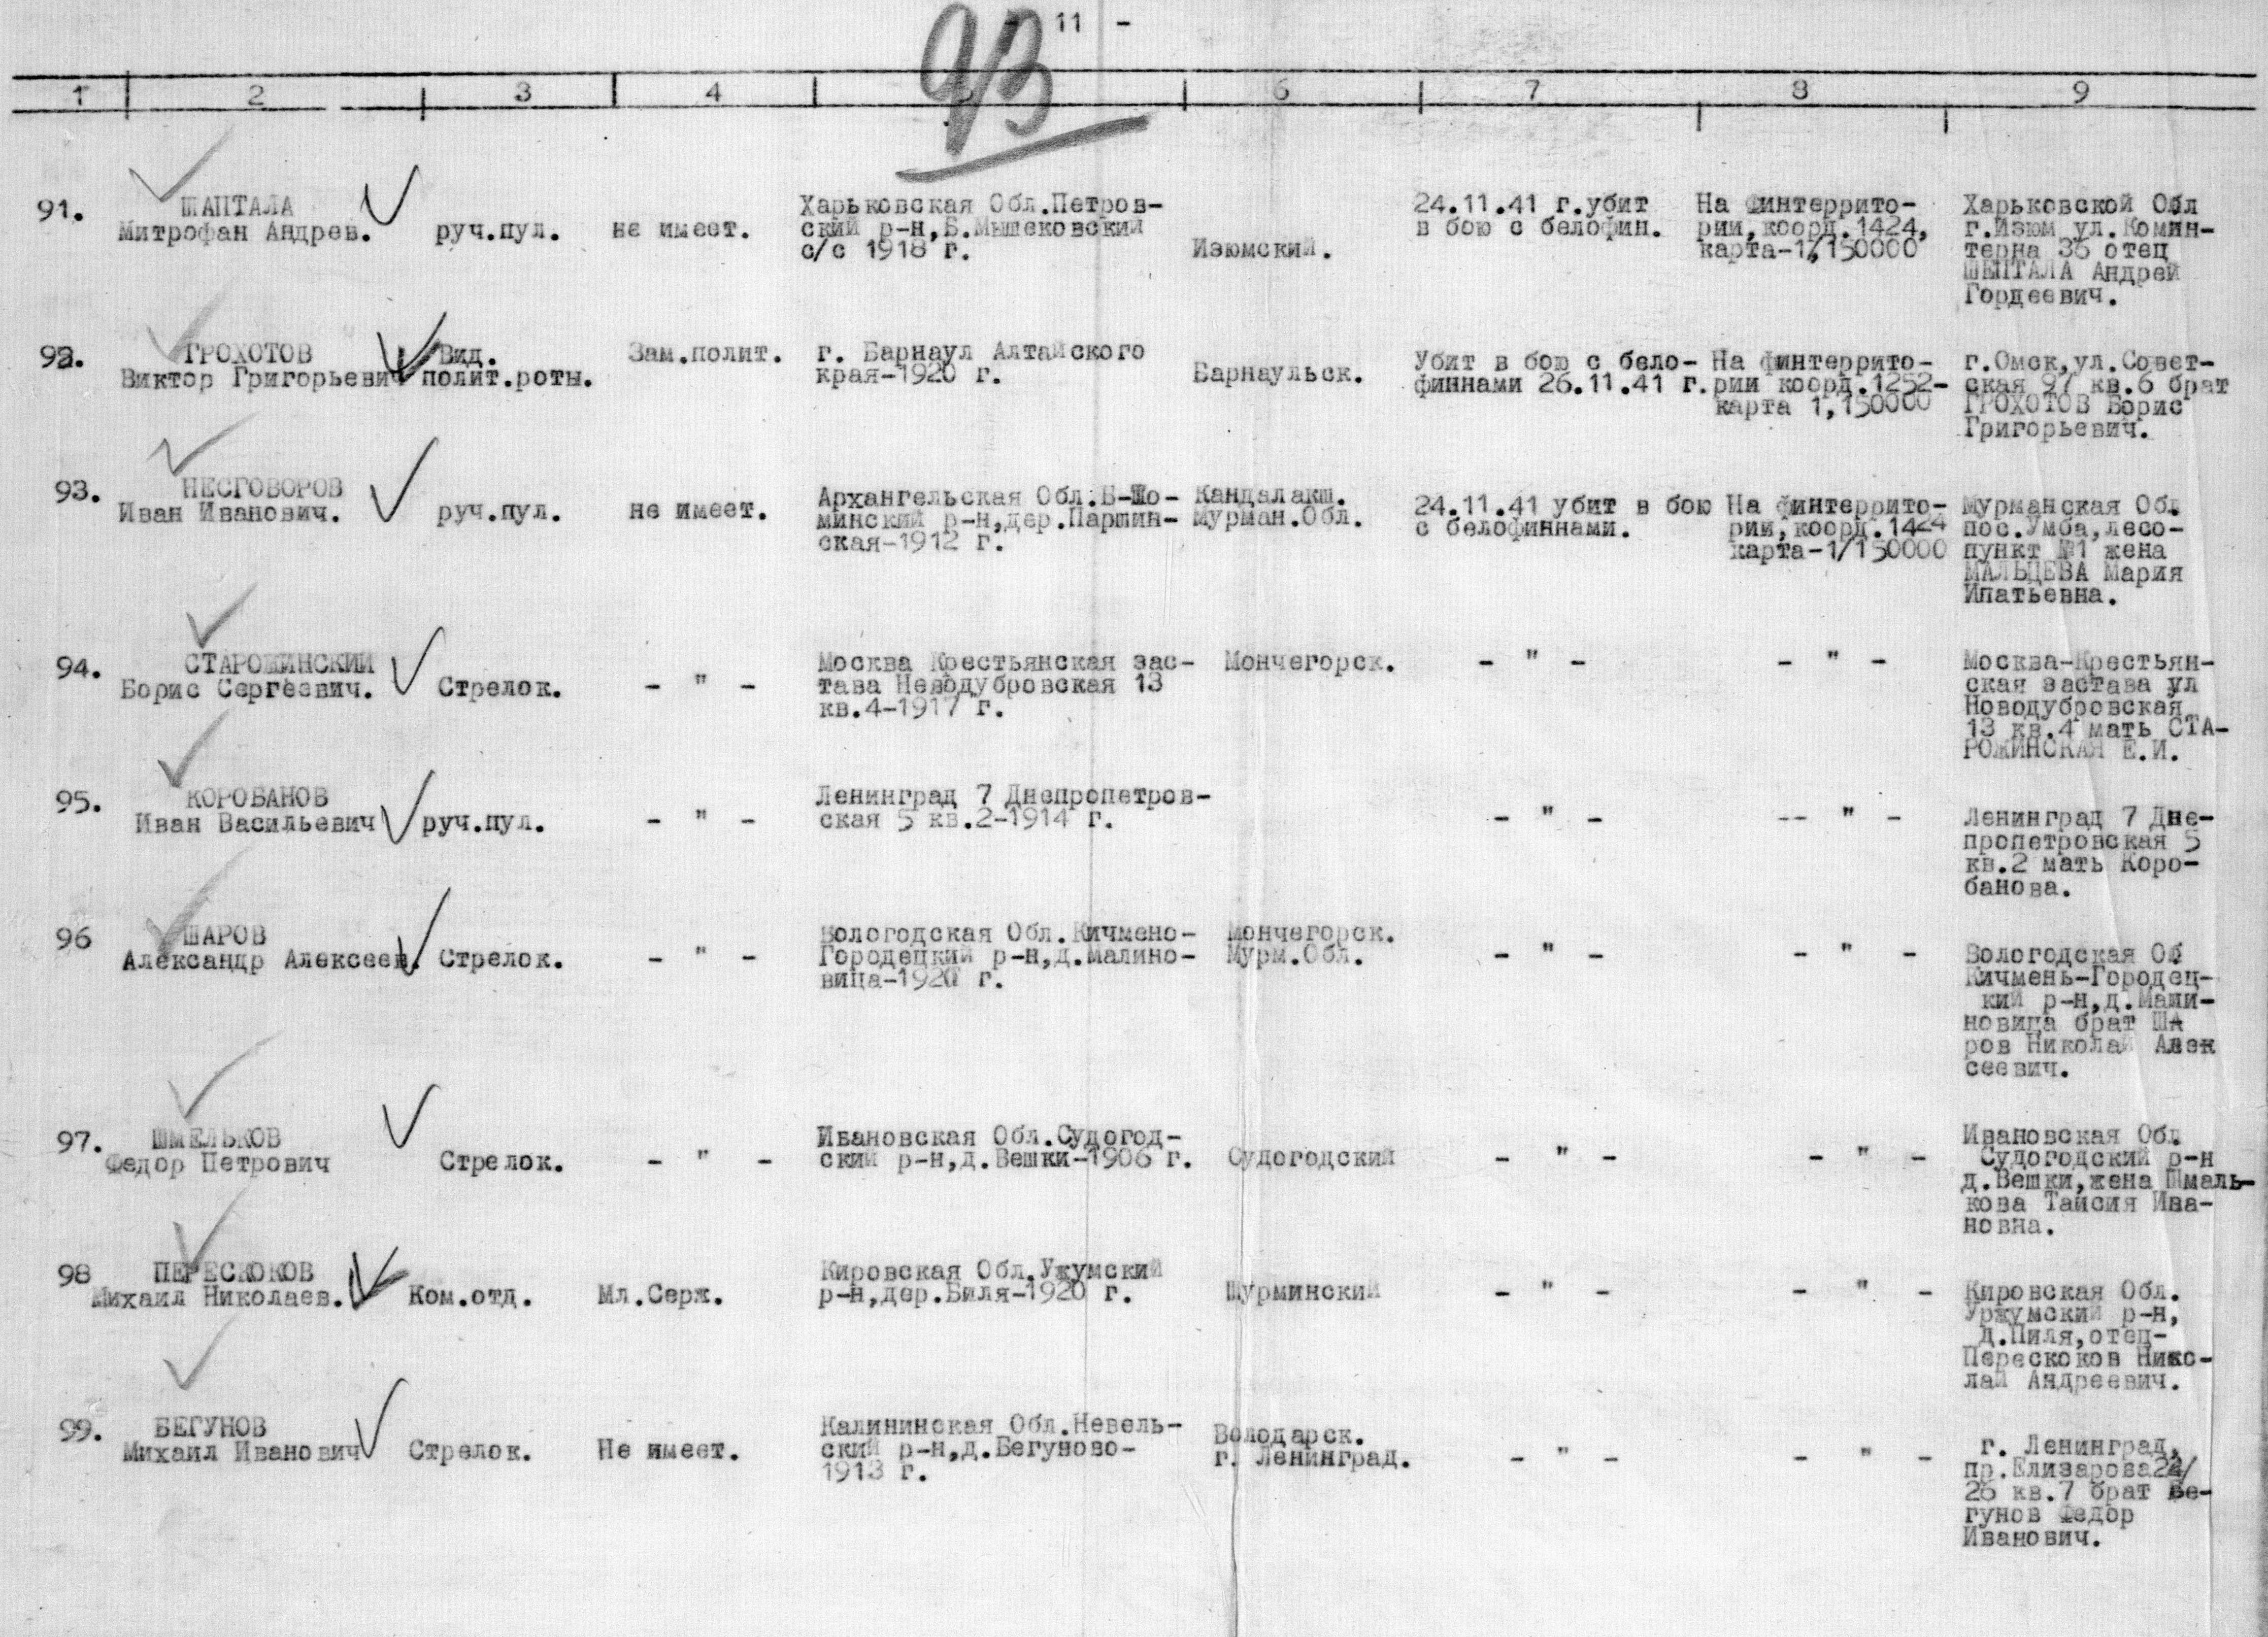 - 11 -
93
1 2 3 4 5 6 7 8 9
91.
ШАПТАЛА
Митрофан Андрев.
руч.пул.
не имеет.
Харьковская Обл.Петров-
ский р-н,Б.Мышековский
с/с 1918 г.
Изюмский.
24.11.41 г.убит
в бою с белофин.
На финтеррито-
рии,коорд.1424,
карта-1/150000
Харьковской Обл
г.Изюм ул.Комин-
терна 36 отец
ШЕПТАЛА Андрей
Гордеевич.
92.
ГРОХОТОВ
Виктор Григорьевич
Вид.
полит.роты.
Зам.полит.
г. Барнаул Алтайского
края-1920 г.
Барнаульск.
Убит в бою с бело-
финнами 26.11.41 г.
На финтеррито-
рии коорд.1252-
карта 1,150000
г.Омск,ул.Совет-
ская 97 кв.6 брат
ГРОХОТОВ Борис
Григорьевич.
93.
НЕСГОВОРОВ
Иван Иванович.
руч.пул.
не имеет.
Архангельская Обл.Б-Шо-
минский р-н,дер.Паршин-
ская-1912 г.
Кандалакш.
Мурман.Обл.
24.11.41 убит в бою
с белофиннами.
На финтеррито-
рии,коорд.1424
карта-1/150000
Мурманская Обл
пос.Умба,лесо-
пункт №1 жена
МАЛЬЦЕВА Мария
Ипатьевна.
94.
СТАРОЖИНСКИЙ
Борис Сергеевич.
Стрелок.
- " -
Москва Крестьянская зас-
тава Неводубровская 13
кв.4-1917 г.
Мончегорск.
- " -
- " -
Москва-Крестьян-
ская застава ул
Новодубровская
13 кв.4 мать СТА-
РОЖИНСКАЯ Е.И.
95.
КОРОБАНОВ
Иван Васильевич
руч.пул.
- " -
Ленинград 7 Днепропетров-
ская 5 кв.2-1914 г.
- " -
-- " -
Ленинград 7 Дне-
пропетровская 5
кв.2 мать Коро-
банова.
96
ШАРОВ
Александр Алексеев.
Стрелок.
- " -
Вологодская Обл.Кичмено-
Городецкий р-н,д.Малино-
вица-1920 г.
Мончегорск.
Мурм.Обл.
- " -
- " -
Вологодская Об
Кичмень-Городец-
кий р-н,д.Мали-
новица брат ША
ров Николай Алек
сеевич.
97.
ШМЕЛЬКОВ
Федор Петрович
Стрелок.
- " -
Ивановская Обл.Судогод-
ский р-н,д.Вешки-1906 г.
Судогодский
- " -
- " -
Ивановская Обл
Судогодский р-н
д.Вешки,жена Шмаль-
кова Таисия Ива-
новна.
98
ПЕРЕСКОКОВ
Михаил Николаев.
Ком.отд.
Мл.Серж.
Кировская Обл.Ужумский
р-н,дер.Биля-1920 г.
Шурминский
- " -
- " -
Кировская Обл.
Уржумский р-н,
д.Пиля,отец-
Перескоков Нико-
лай Андреевич.
99.
БЕГУНОВ
Михаил Иванович
Стрелок.
Не имеет.
Калининская Обл.Невель-
ский р-н,д.Бегуново-
1913 г.
Володарск.
г. Ленинград.
- " -
- " -
г. Ленинград,
пр.Елизарова
26 кв.7 брат Бе-
гунов Федор
Иванович.